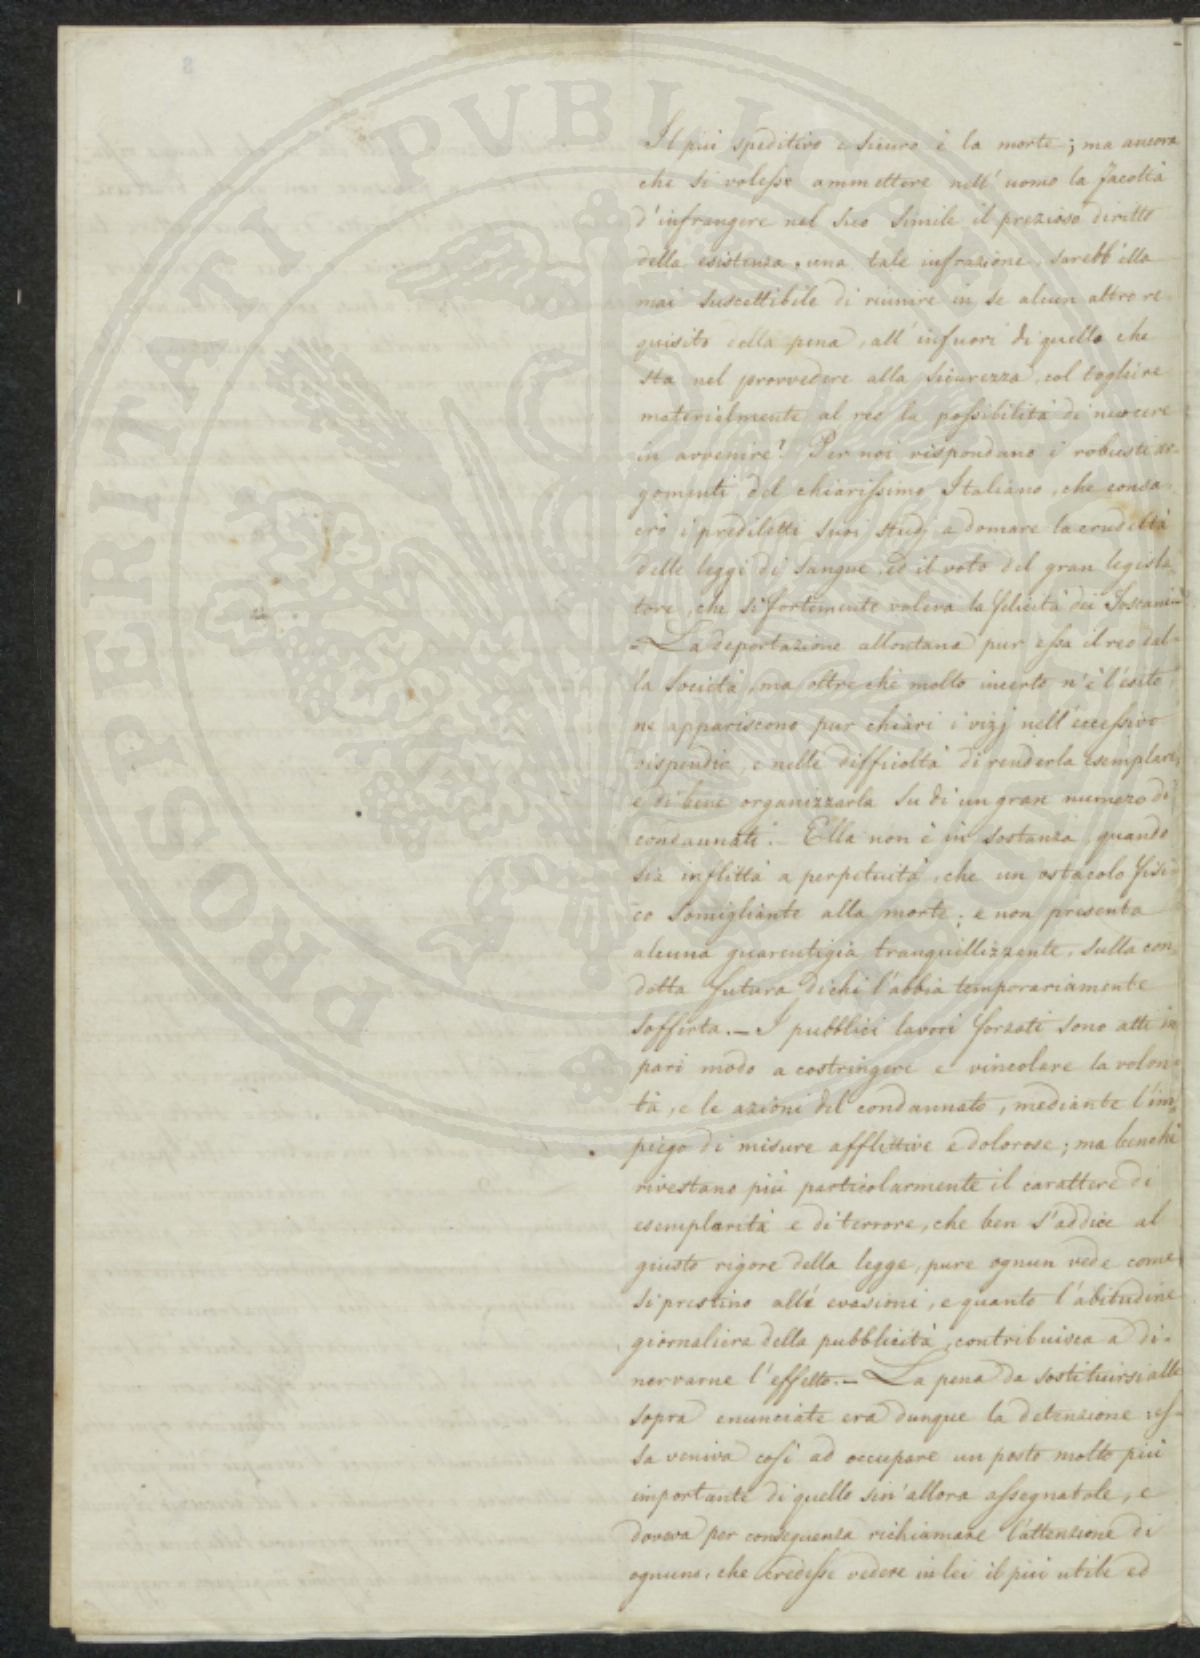 Il più speditivo e sicuro è la morte; ma ancora
che si volesse ammettere nell'uomo la facoltà
d'infrangere nel suo simile il prezioso diritto
della esistenza, una tale infrazione, sarebb'ella
mai suscettibile di riunire in se alcun altro re-
quisito della pena, all'infuori di quello che
sta nel provvedere alla sicurezza, col togliere
materialmente al reo la possibilità di nuocere
in avvenire? Per noi rispondano i robusti ar-
gomenti del chiarissimo Italiano, che consa-
crò i prediletti suoi studj a domare la crudeltà
delle leggi di sangue, ed il voto del gran legisla-
tore, che sì fortemente voleva la felicità dei Toscani.—
— La deportazione allontana pur essa il reo dal-
la Società, ma oltre che molto incerto n'è l'esito,
ne appariscono pur chiari i vizj nell'eccessivo
dispendio, e nelle difficoltà di renderla esemplare,
e di bene organizzarla su di un gran numero di
condannati.— Ella non è in sostanza, quando
sia inflitta a perpetuità, che un ostacolo fisi-
co somigliante alla morte; e non presenta
alcuna guarentigia tranquillizzante, sulla con-
dotta futura di chi l'abbia temporariamente
sofferta.— I pubblici lavori forzati sono atti in
pari modo a costringere e vincolare la volon-
tà, e le azioni del condannato, mediante l'im-
piego di misure afflittive e dolorose; ma benchè
rivestano più particolarmente il carattere di
esemplarità e di terrore, che ben s'addice al
giusto rigore della legge, pure ognun vede come
si prestino alle evasioni, e quanto l'abitudine
giornaliera della pubblicità, contribuisca a di-
nervarne l'effetto.— La pena da sostituirsi alle
sopra enunciate era dunque la detenzione: es-
sa veniva così ad occupare un posto molto più
importante di quello sin'allora assegnatole, e
doveva per conseguenza richiamare l'attenzione di
ognuno, che credesse vedere in lei il più utile ed
PROSPERITATI PUBLICAE